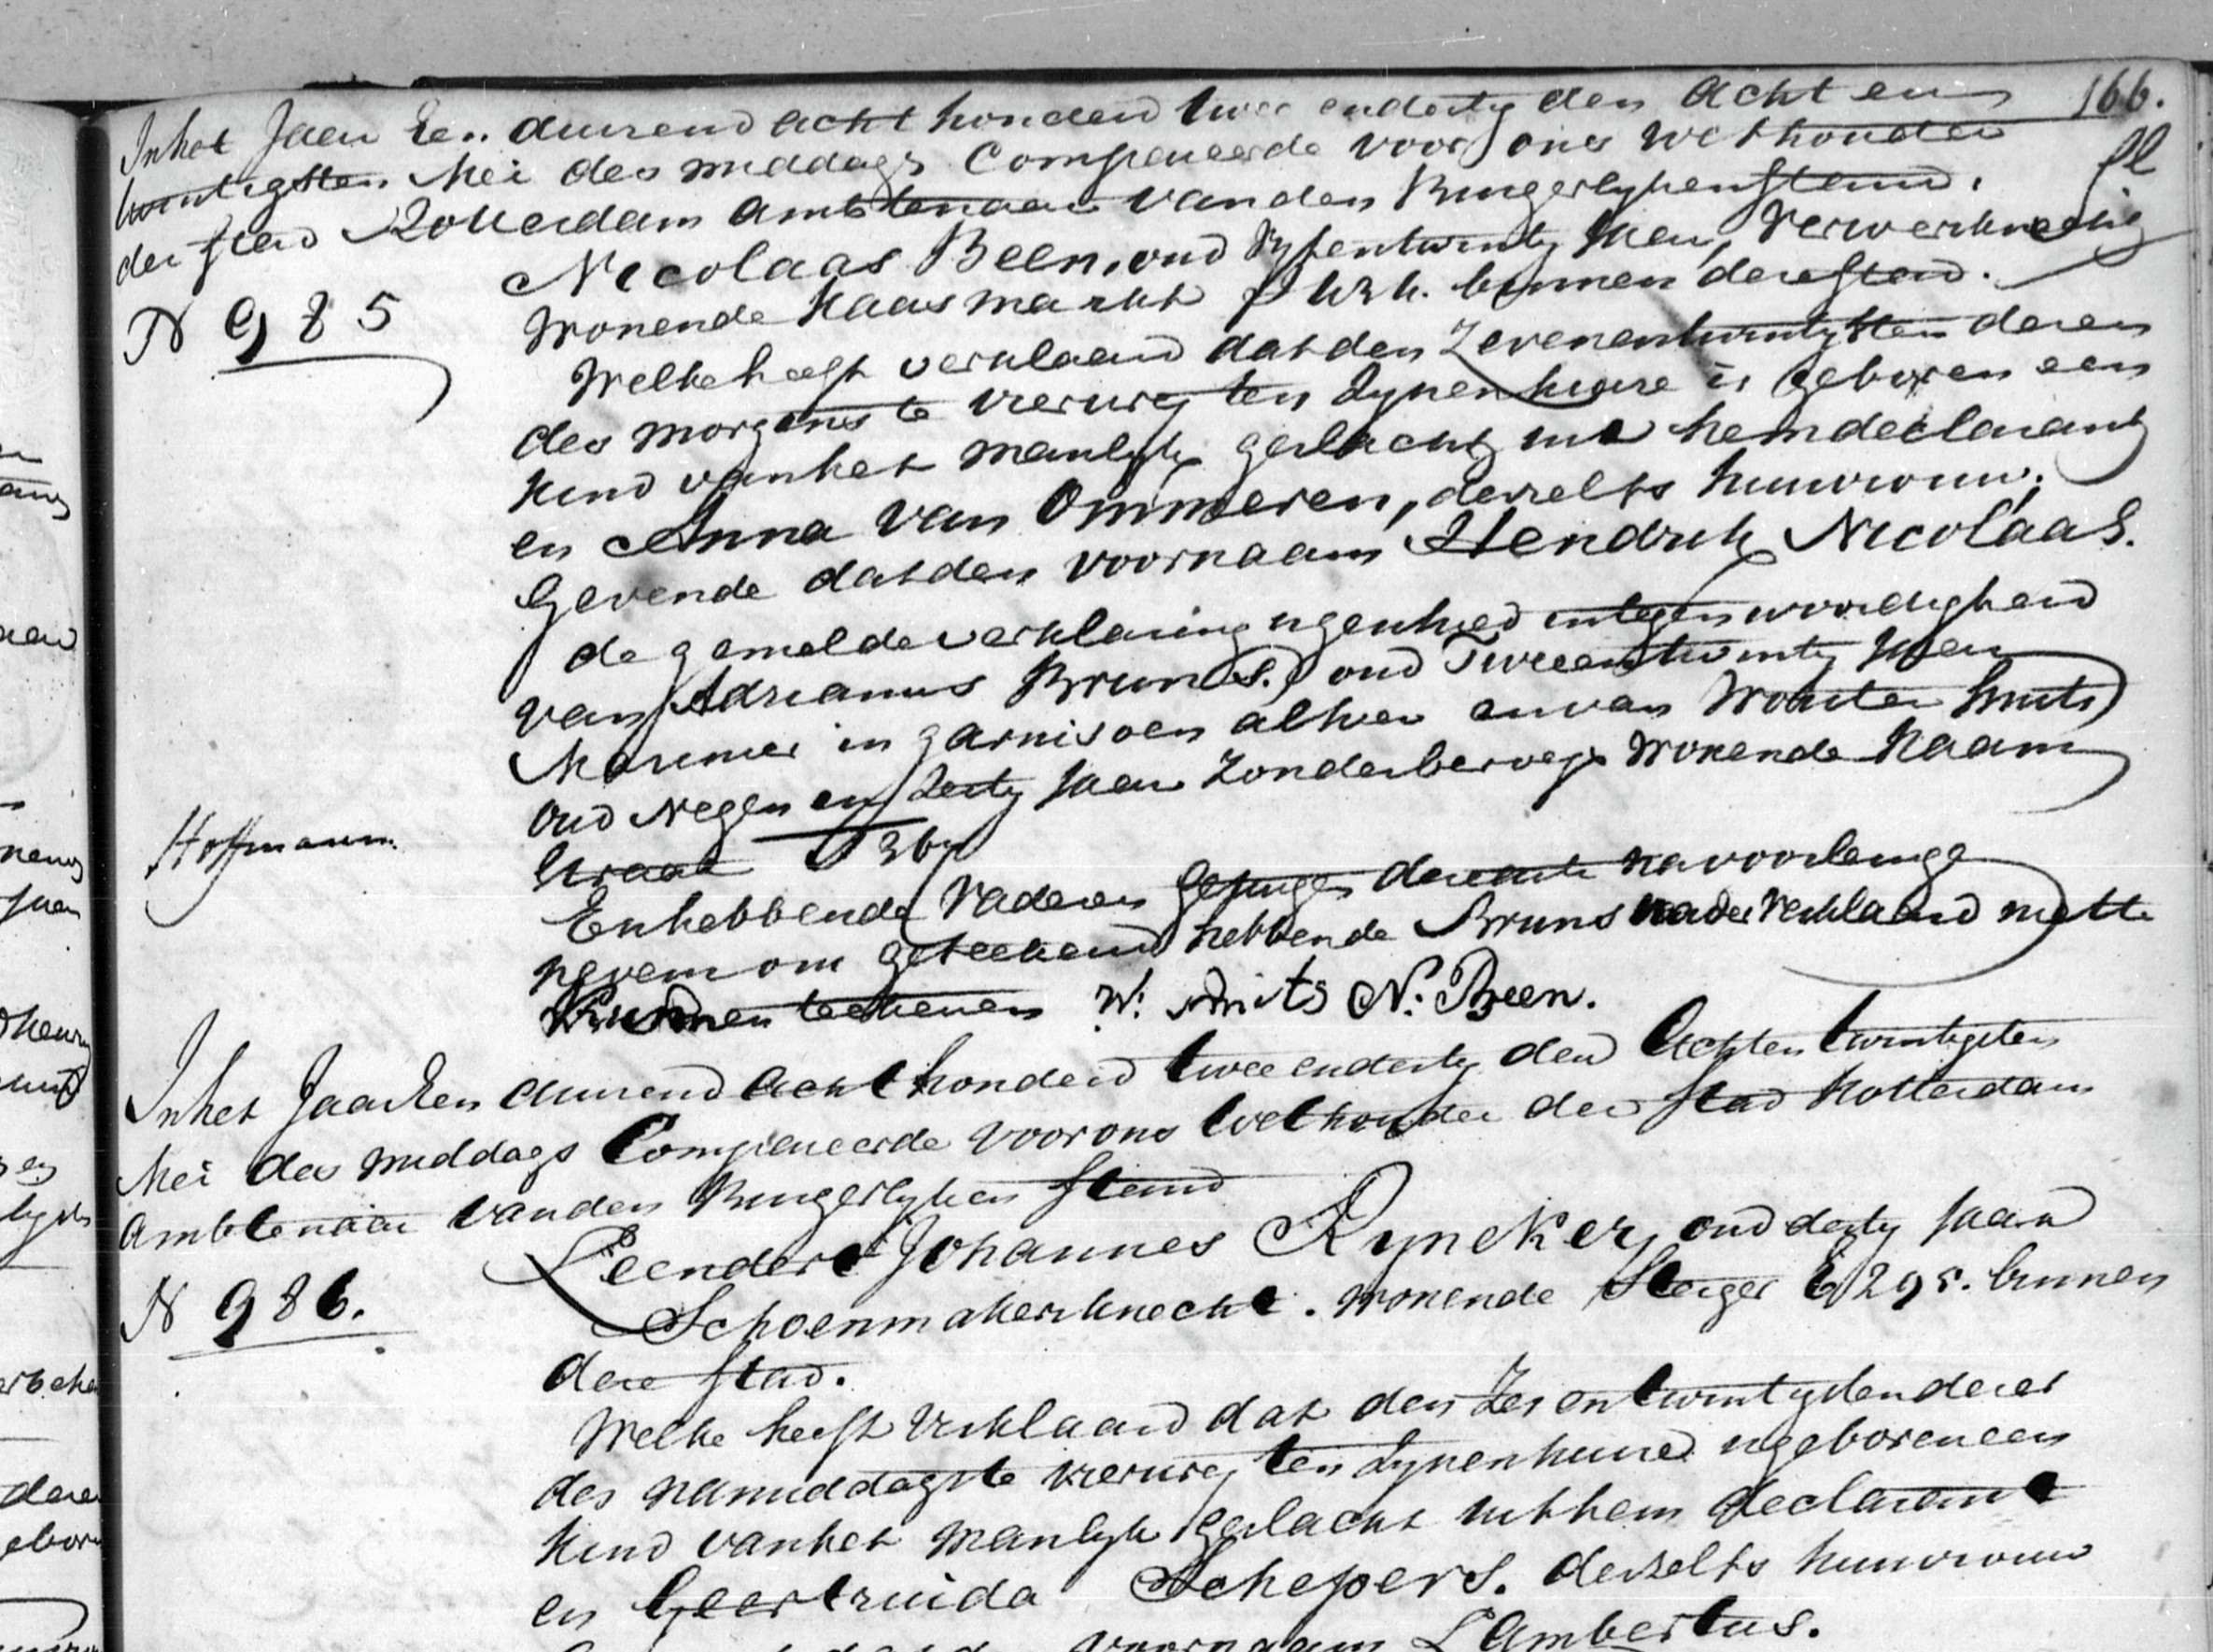 166.
In het Jaar Een duizend acht honderd twee endertig den Acht en
twintigsten Mei des middags Compareerde voor ons Wethouder
der stad Rotterdam Ambtenaar van den Burgerlyken stand.
N 985
Nicolaas Been, oud Vyfentwintig Jaar, Verwerknecht
Wonende Kaasmarkt binnen deze stad.
Welke heeft verklaard dat den Zevenentwintigsten dezer
des morgens te vier ure, ten Zynen huize is geboren een
kind van het manlyk geslacht, uit hem declarant
en Anna van Ommeren, deszelfs huisvrouw,
Gevende dat den voornaam Hendrik Nicolaas.
de gemelde verklaring is geschied in tegenwoordigheid
van Adrianus Bruns. oud Tweeentwintig Jaar
Marinier in garnisoen alhier en van Wouter Smits
oud Negen en dertig Jaar Zonder beroep Wonende Raam
Hoffmann
straat
En hebbende Vader en getuigen deze acte na voorlezing
nevens ons geteekend hebbende Bruns nader Verklaard niet te
kunnen teekenen W. Smits N. Been.
In het Jaar Een duizend Acht honderd twee endertig den Achten twintigsten
Mei des middags Compareerde voor ons Wethouder der stad Rotterdam
Ambtenaar van den Burgerlyken stand
Leendert Johannes Ryneker, oud dertig Jaar
N 986.
Schoenmakersknecht. wonende Steiger 295. binnen
deze stad.
Welke heeft Verklaard dat den Zes en twintigsten dezer
des namiddags te vier ure, ten Zynen huize is geboren een
kind van het Manlyk geslacht uit hem declarant
en Geertruida Schepers. deszelfs huisvrouw
voornaam Lambertus.